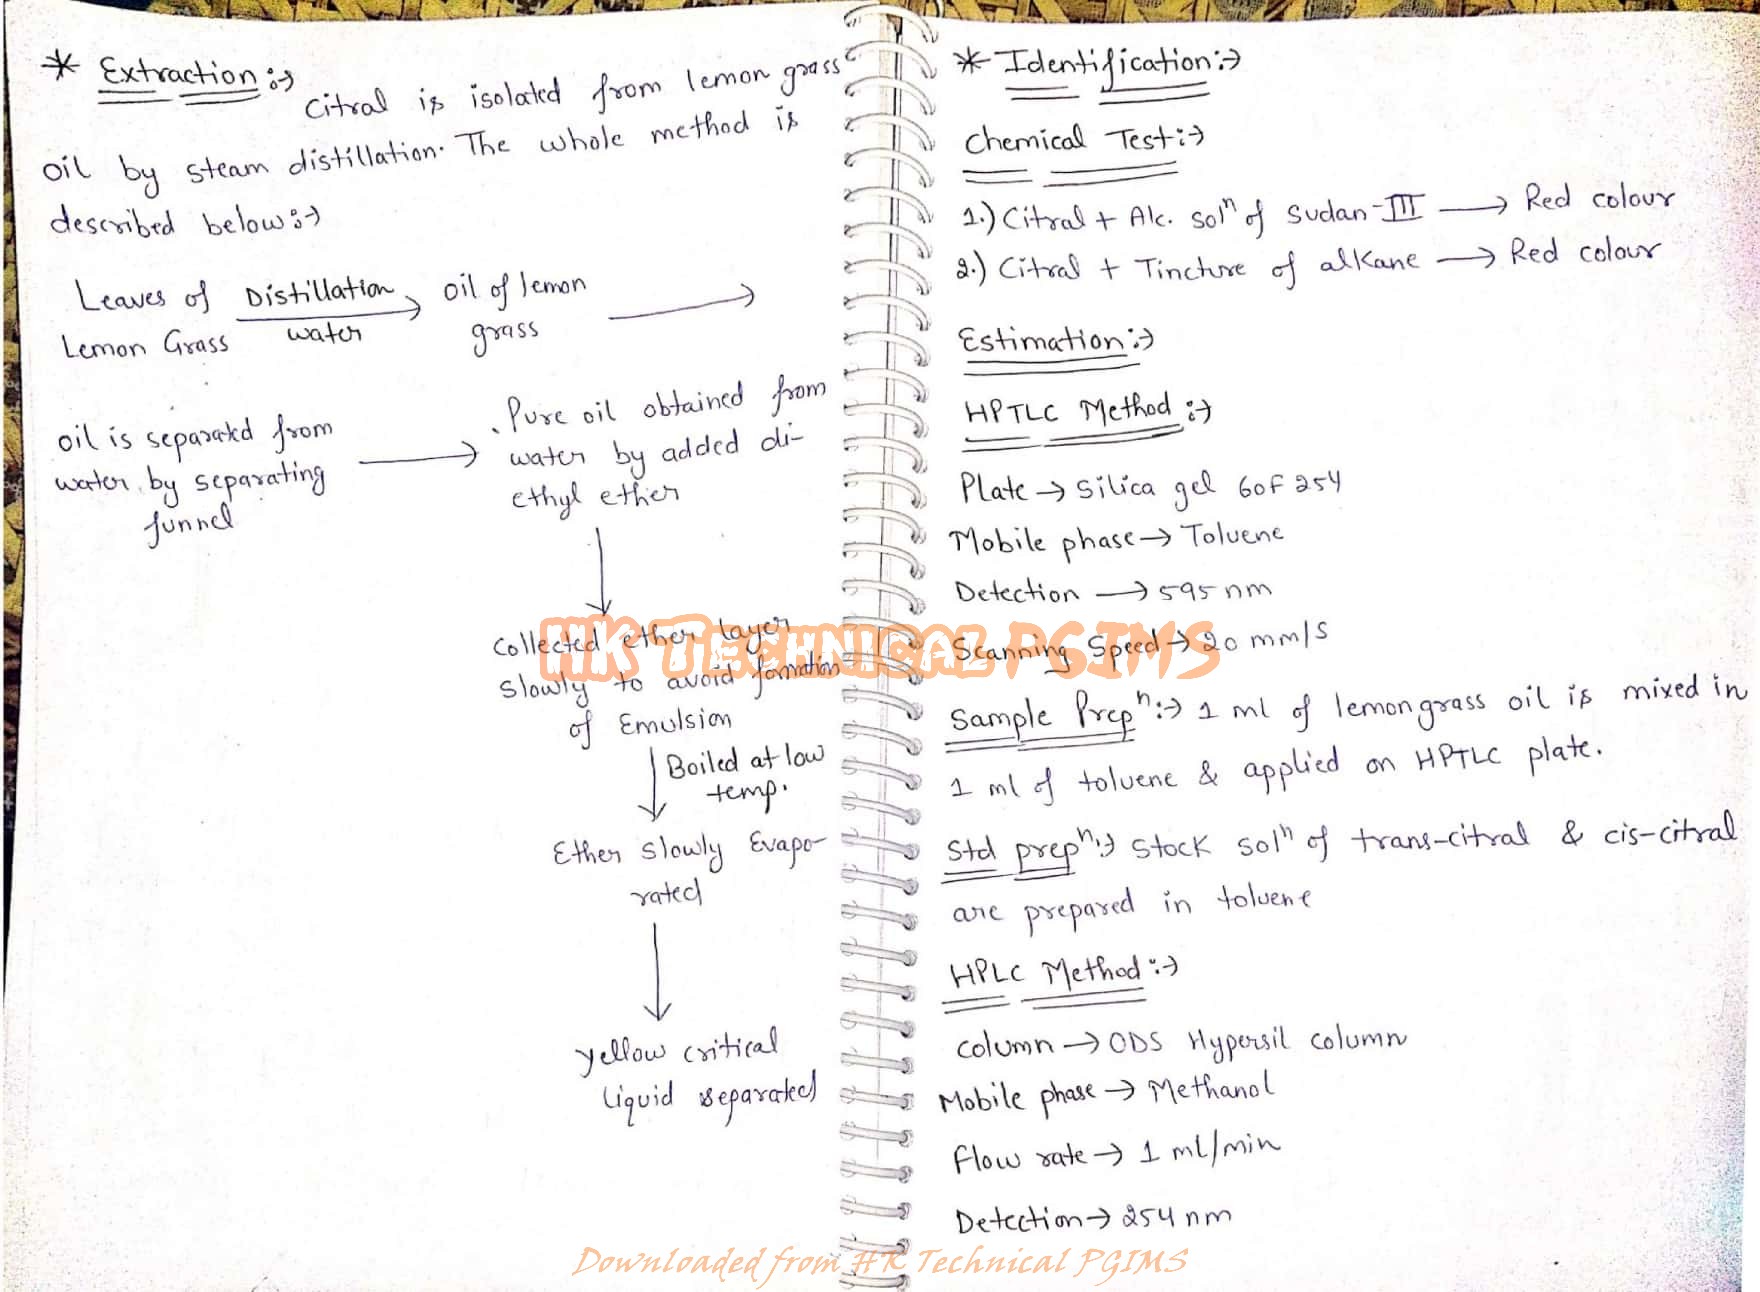 * Extraction :→
Citral is isolated from lemon grass
oil by steam distillation. The whole method is
described below :→
Leaves of Lemon Grass
Distillation
water
oil of lemon grass
oil is separated from
water by separating
funnel
Pure oil obtained from
water by added di-
ethyl ether
Collected ether layer
slowly to avoid formation
of Emulsion
Boiled at low
temp.
Ether slowly Evapo-
rated
yellow critical
liquid separated
* Identification :→
Chemical Test :→
1.) Citral + Alc. solⁿ of Sudan-III → Red colour
2.) Citral + Tincture of alkane → Red colour
Estimation :→
HPTLC Method :→
Plate → Silica gel 60F254
Mobile phase → Toluene
Detection → 595 nm
Scanning Speed → 20 mm/s
Sample Prepⁿ :→ 1 ml of lemongrass oil is mixed in
1 ml of toluene & applied on HPTLC plate.
Std prepⁿ :→ Stock solⁿ of trans-citral & cis-citral
are prepared in toluene
HPLC Method :→
Column → ODS Hypersil column
Mobile phase → Methanol
Flow rate → 1 ml/min
Detection → 254 nm
HK Technical PGIMS
Downloaded from HK Technical PGIMS